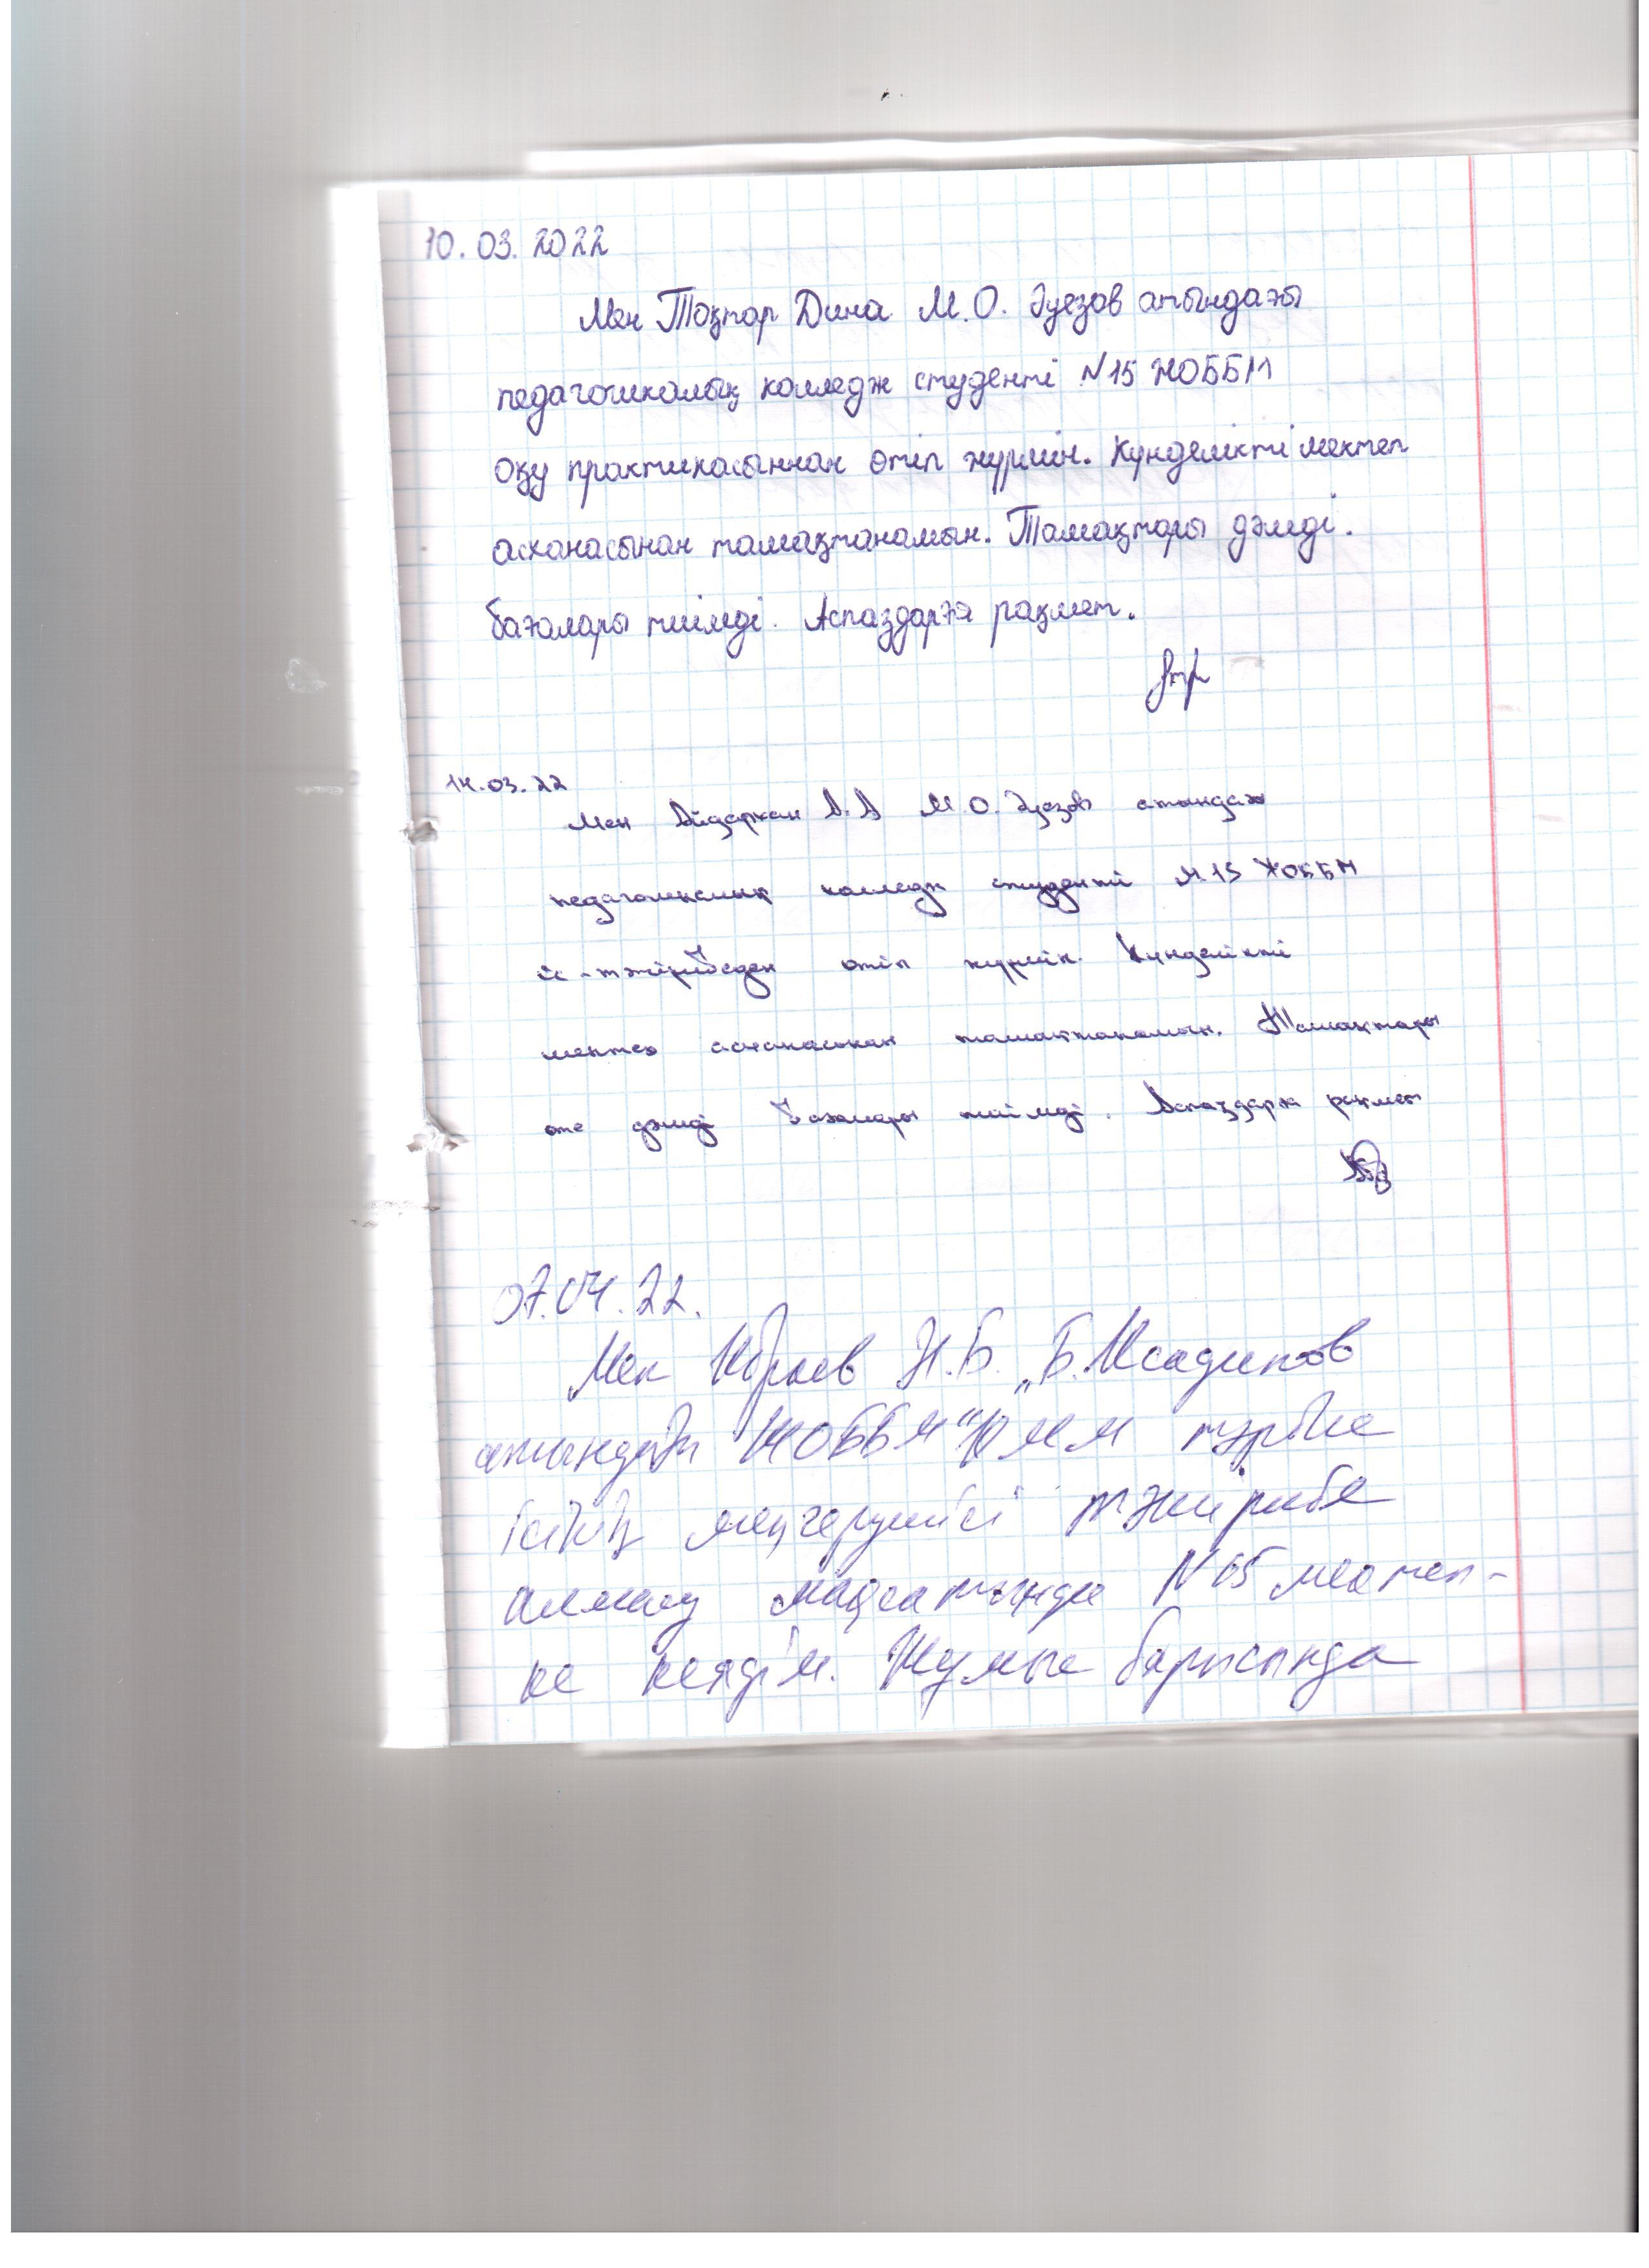 10.03.2022
Мен Тоқтар Дина М.О. Әуезов атындағы
педагогикалық колледж студенті N15 ЖОББМ
оқу практикасыннан өтіп жүрмін. Күнделікті мектеп
асханасынан тамақтанамын. Тамақтары дәмді.
бағалары тиімді. Аспаздарға рақмет.
14.03.22
Мен Айдархан А.А М.О. Әуезов атындағы
педагогикалық колледж студенті N15 ЖОББМ
іс-тәжірибеден өтіп жүрмін. Күнделікті
мектеп асханасынан тамақтанамын. Тамақтары
өте дәмді бағалары тиімді. Аспаздарға рақмет
07.04.22.
Мен Ибраев Н.Б. „Б.Мсадыков
атындағы ЖОББМ" КММ тәрбие
ісінің меңгерушісі тәжірибе
алмасу мақсатында N15 мектеп-
ке келдім. Жұмыс барысында